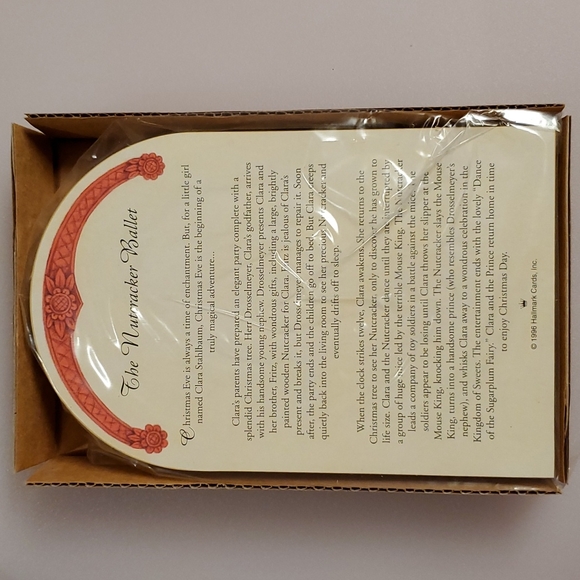 The Nutcracker Ballet
Christmas Eve is always a time of enchantment. But, for a little girl
named Clara Stahlbaum, Christmas Eve is the beginning of a
truly magical adventure...
Clara's parents have prepared an elegant party complete with a
splendid Christmas tree. Herr Drosselmeyer, Clara's godfather, arrives
with his handsome young nephew. Drosselmeyer presents Clara and
her brother, Fritz, with wondrous gifts, including a large, brightly
painted wooden Nutcracker for Clara. Fritz is jealous of Clara's
present and breaks it, but Drosselmeyer manages to repair it. Soon
after, the party ends and the children go off to bed. But Clara creeps
quietly back into the living room to see her precious Nutcracker and
eventually drifts off to sleep.
When the clock strikes twelve, Clara awakens. She returns to the
Christmas tree to see her Nutcracker, only to discover he has grown to
life size. Clara and the Nutcracker dance until they are interrupted by
a group of huge mice led by the terrible Mouse King. The Nutcracker
leads a company of toy soldiers in a battle against the mice. The
soldiers appear to be losing until Clara throws her slipper at the
Mouse King, knocking him down. The Nutcracker slays the Mouse
King, turns into a handsome prince (who resembles Drosselmeyer's
nephew), and whisks Clara away to a wondrous celebration in the
Kingdom of Sweets. The entertainment ends with the lovely "Dance
of the Sugarplum Fairy." Clara and the Prince return home in time
to enjoy Christmas Day.
© 1996 Hallmark Cards, Inc.